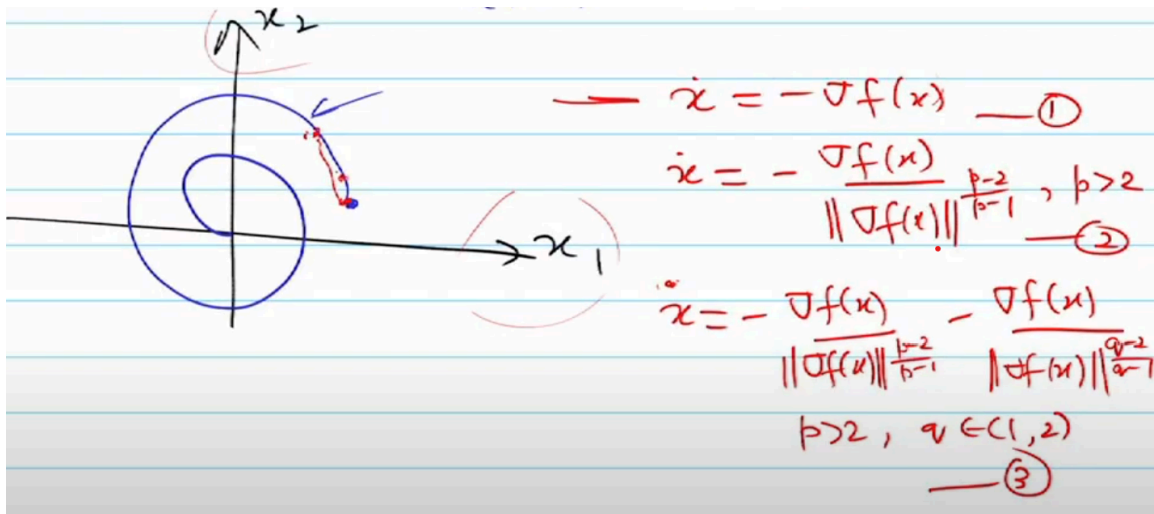 x₂
x₁
ẋ = - ∇f(x) — ①
ẋ = - ∇f(x) / ||∇f(x)||^{(p-2)/(p-1)}, p>2 — ②
ẋ = - ∇f(x) / ||∇f(x)||^{(p-2)/(p-1)} - ∇f(x) / ||∇f(x)||^{(q-2)/(q-1)}
p>2, q ∈ (1,2)
— ③